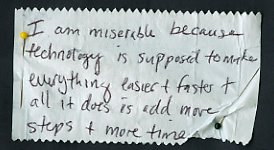 I am miserable because
technology is supposed to make
everything easier + faster +
all it does is add more
steps + more time